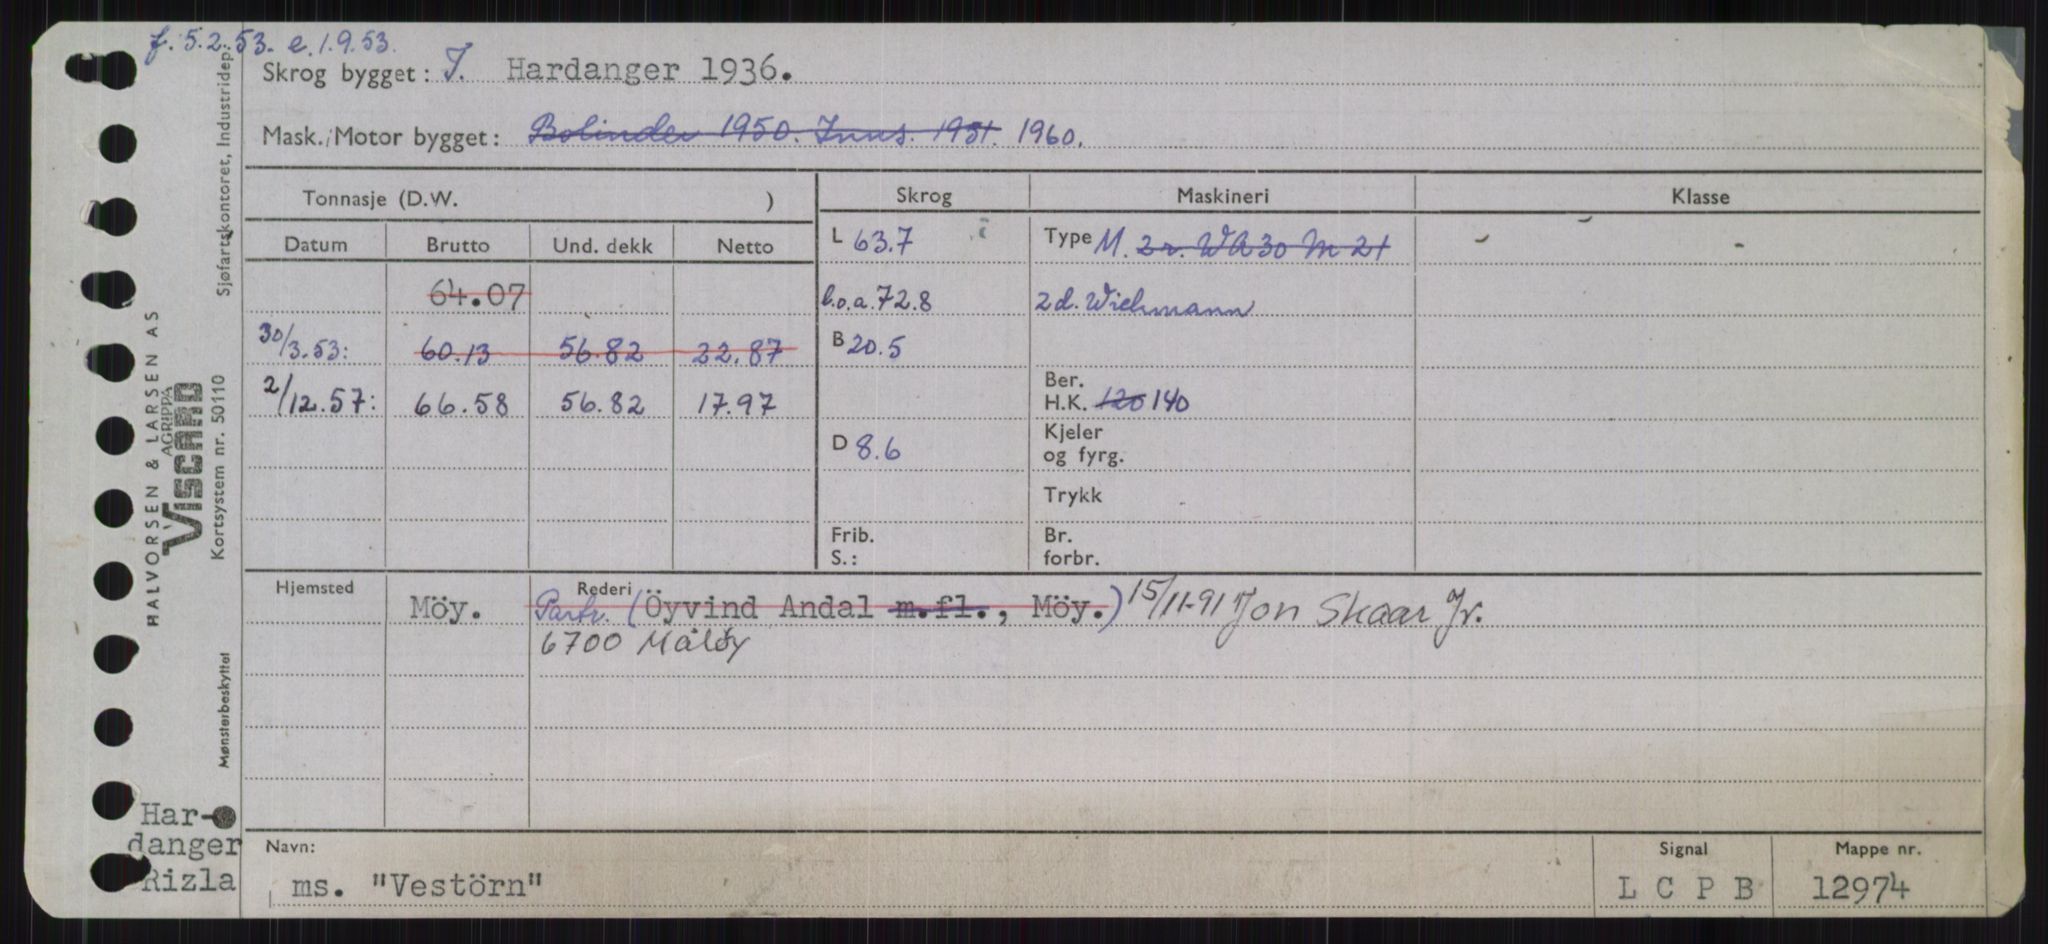 f. 5.2.53. e. 1.9.53.
Skrog bygget: J. Hardanger 1936.
Mask./Motor bygget: Bolinder 1950. Inns. 1951. 1960.
Tonnasje (D.W. )
Skrog Maskineri Klasse
Datum Brutto Und. dekk Netto
L 63.7 Type M. 2 r. WA30 M 21 - -
64.07
l.o.a. 72.8 2 d. Wichmann
30/3.53: 60.13 56.82 22.87
B 20.5
2/12.57: 66.58 56.82 17.97
Ber.
H.K. 120 140
D 8.6 Kjeler
og fyrg.
Trykk
Frib. Br.
S.: forbr.
Hjemsted Rederi
Möy. Partr. (Öyvind Andal m.fl., Möy.) 15/11-91 Jon Skaar Jr.
6700 Måløy
Navn: Signal Mappe nr.
ms. "Vestörn" L C P B 12974
HALVORSEN & LARSEN AS
AGRIPPA
VISCARD
Sjøfartskontoret, Industridep.
Kortsystem nr. 50110
Mønsterbeskyttet
Har-
danger
Rizla